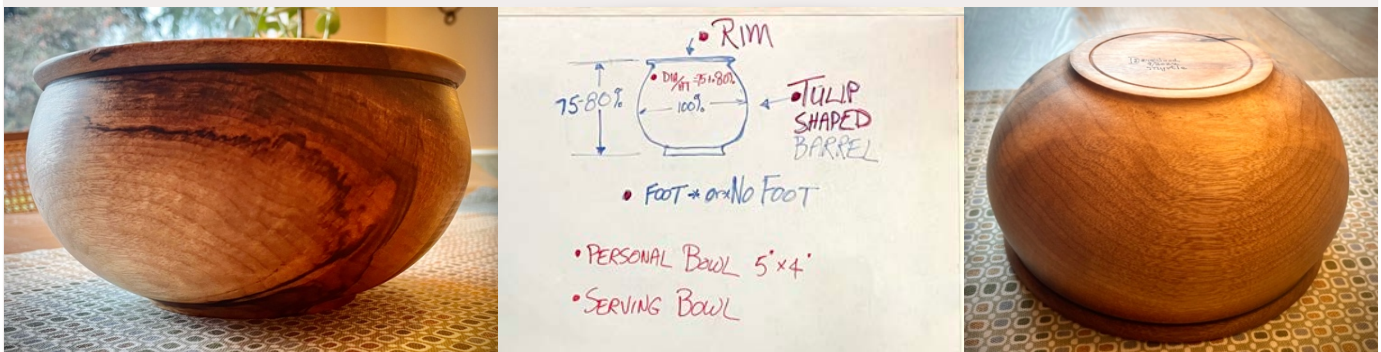 • RIM
75-80%
100%
• TULIP
SHAPED
BARREL
• FOOT * or * NO FOOT
• PERSONAL BOWL 5" x 4"
• SERVING BOWL